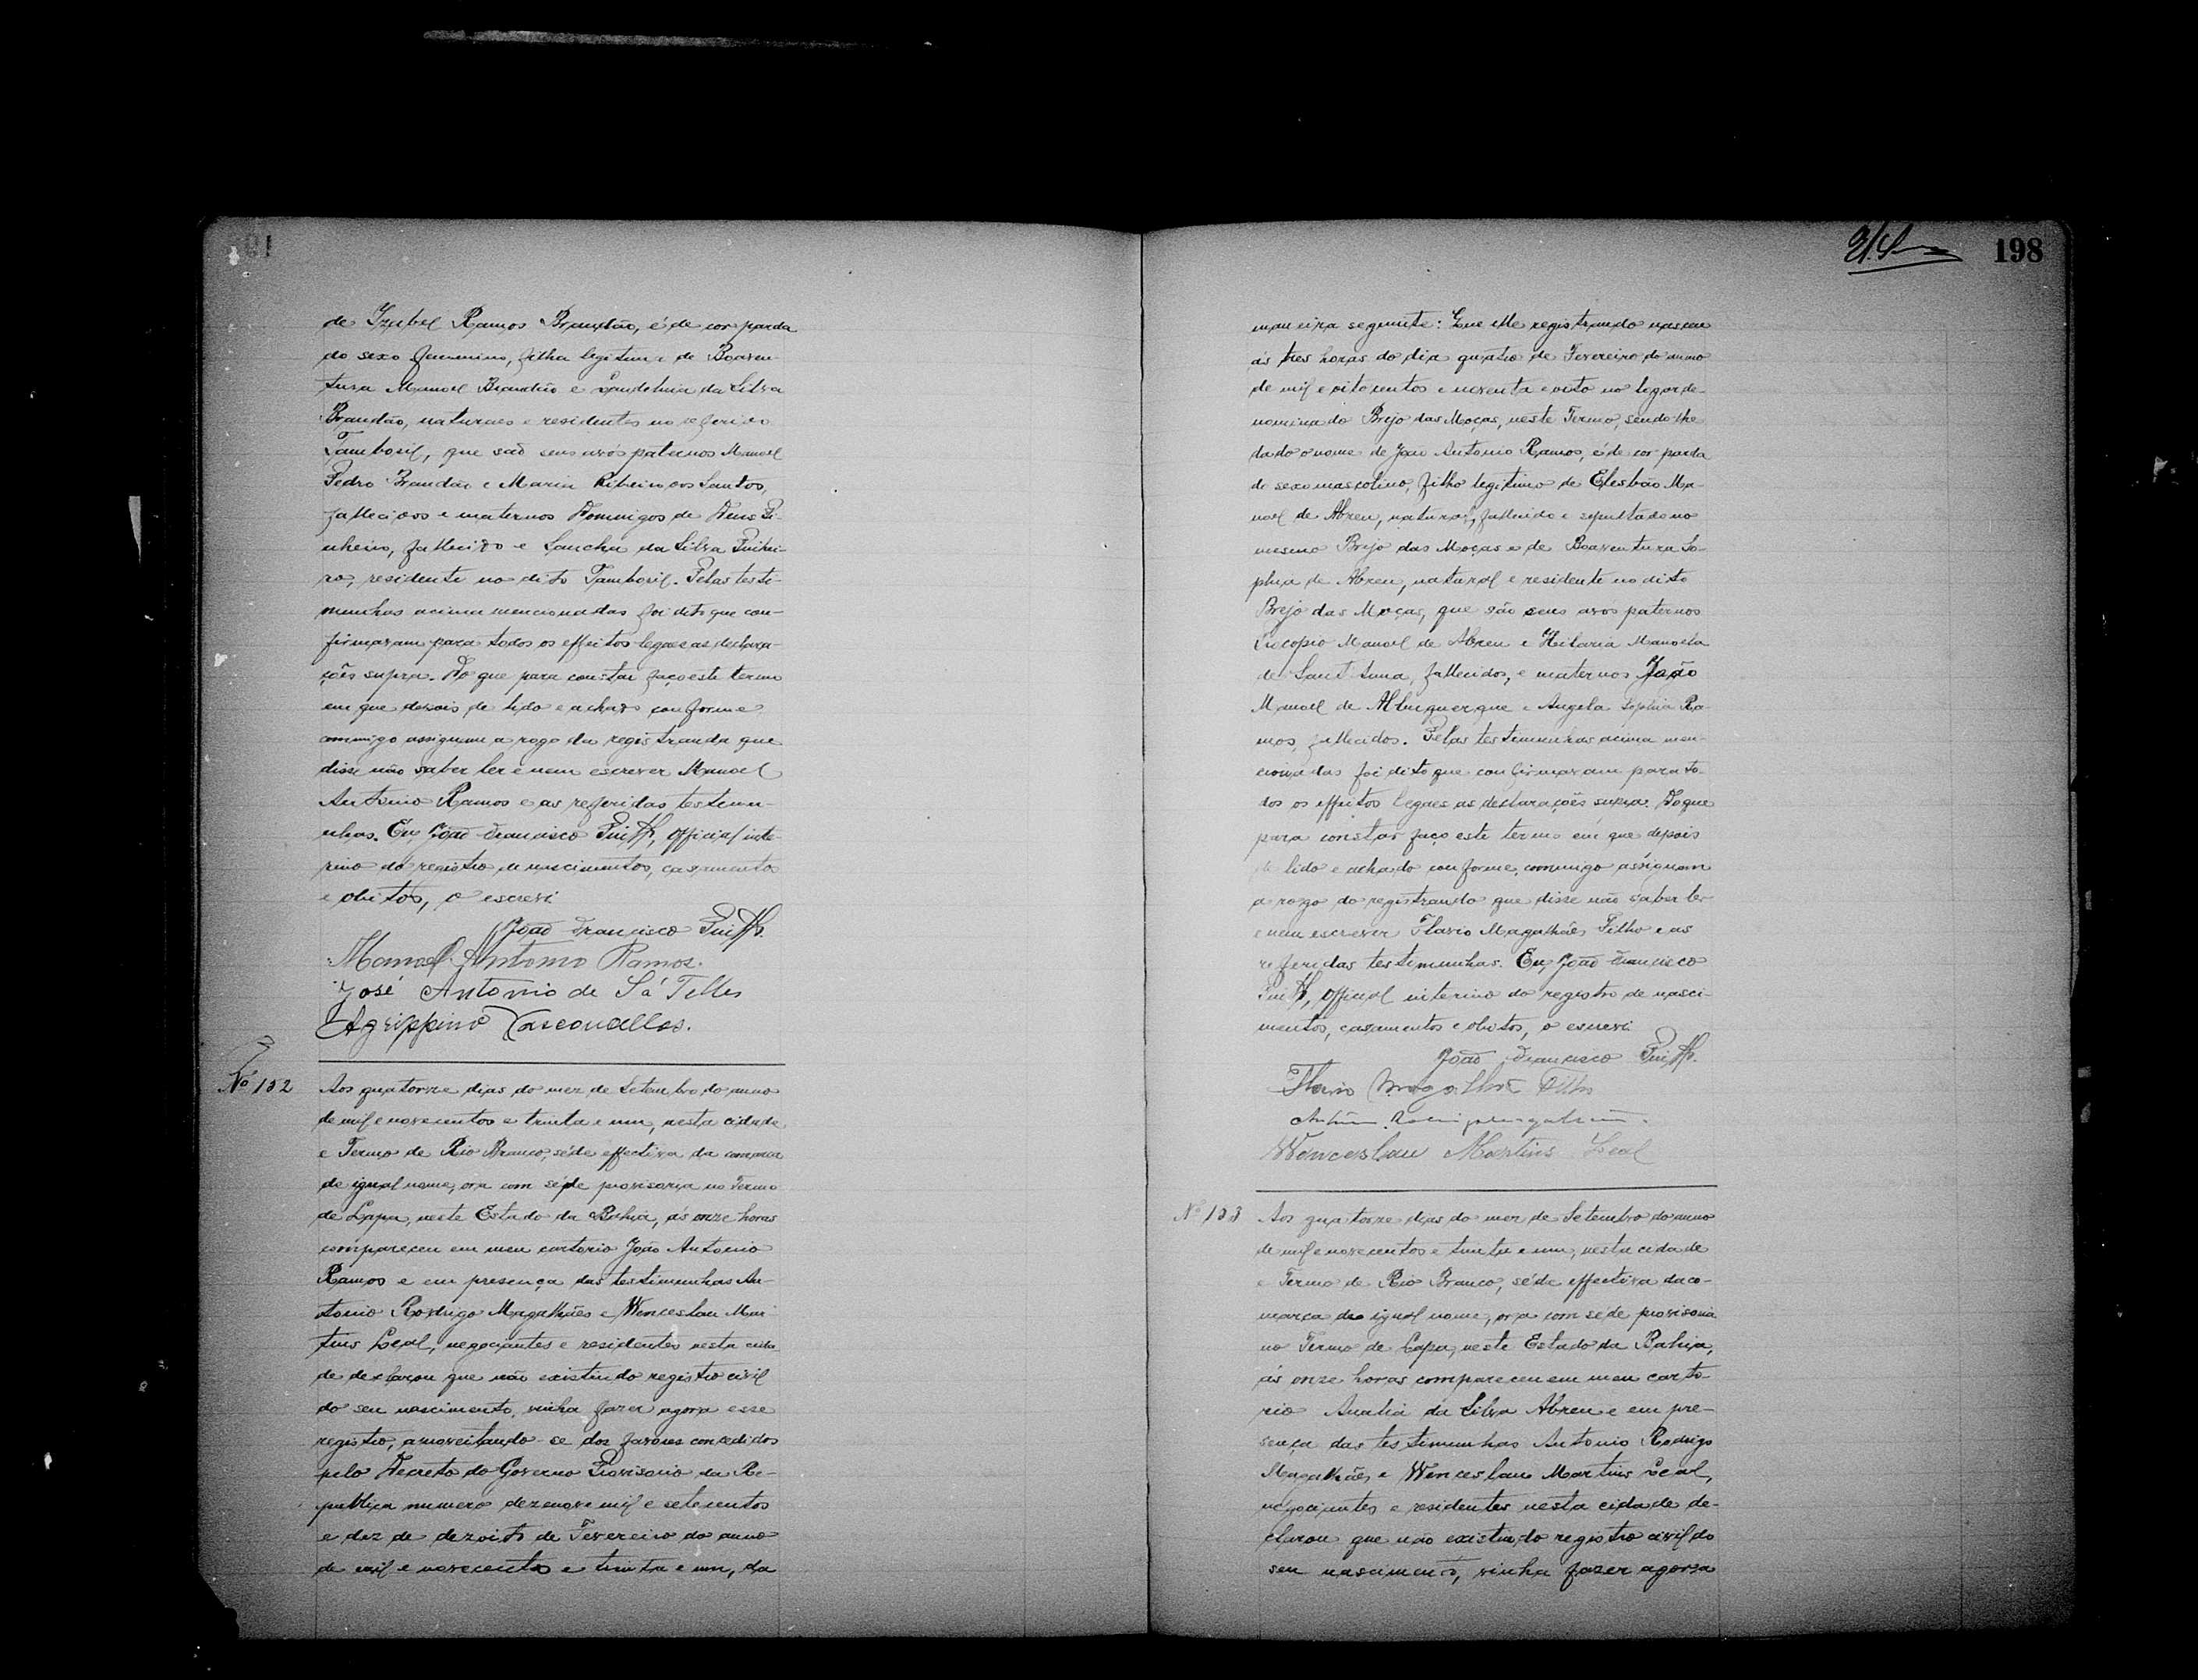 de Izabel Ramos Brandão, é de cor parda
do sexo femenino, filha legitima de Boaven-
tura Manoel Brandão e Laudelina da Silva
Brandão, naturaes e residentes no referido
Tamboril, que são seus avós paternos Manoel
Pedro Brandão e Maria Ribeiro dos Santos,
fallecidos e maternos Domingos de Deus Pi-
nheiro, fallecido e Sancha da Silva Pinhei-
ro, residente no dito Tamboril. Pelas teste-
munhas acima mencionadas foi dito que con-
firmavam para todos os effeitos legaes as declara-
ções supra. Do que para constar faço este termo
em que depois de lido e achado conforme
commigo assignam a rogo da registranda que
disse não saber ler e nem escrever Manoel
Antonio Ramos e as referidas testemu-
nhas. Eu, João Francisco, official inte-
rino do registro de nascimentos, casamentos
e obitos, o escrevi
João Francisco
Manoel Antonio Ramos.
José Antonio de Sá Telles
Agrippino Vasconcellos.
Nº 152
Aos quatorze dias do mez de Setembro do anno
de mil e novecentos e trinta e um, nesta cidade
e Termo de Rio Branco, séde effectiva da comarca
de igual nome, ora com séde provisoria no Termo
de Lapa, neste Estado da Bahia, ás onze horas
compareceu em meu cartorio João Antonio
Ramos e em presença das testimunhas An-
tonio Rodrigo Magalhães e Wenceslau Mar-
tins Leal, negociantes e residentes nesta cida-
de declarou que não existindo registro civil
do seu nascimento, vinha fazer agora esse
registro, aproveitando-se dos favores concedidos
pelo Decreto do Governo Provisorio da Re-
publica numero dezenove mil e setecentos
e dez de dezoito de Fevereiro do anno
de mil e novecentos e trinta e um, da
198
maneira seguinte: Que elle registrando nasceu
ás tres horas do dia quatro de Fevereiro do anno
de mil e oitocentos e noventa e oito no logar de-
nominado Brejo das Moças, neste Termo, sendo-lhe
dado o nome de João Antonio Ramos, é de cor parda
do sexo mascolino, filho legitimo de Elesbão Ma-
noel de Abreu, natural, fallecido e sepultado no
mesmo Brejo das Moças e de Boaventura So-
phia de Abreu, natural e residente no dito
Brejo das Moças, que são seus avós paternos
Procopio Manoel de Abreu e Hilaria Manoela
de Sant'Anna, fallecidos, e maternos João
Manoel de Albuquerque e Angela Sophia Ra-
mos, fallecidos. Pelas testimunhas acima men-
cionadas foi dito que confirmavam para to-
dos os effeitos legaes as declarações supra. Do que
para constar faço este termo em que depois
de lido e achado conforme, commigo assignam
a rogo do registrando que disse não saber ler
e nem escrever Flavio Magalhães Filho e as
referidas testimunhas. Eu, João Francisco
official interino do registro de nasci-
mentos, casamentos e obitos, o escrevi
João Francisco
Flavio Magalhães Filho
Wenceslau Martins Leal
Nº 153
Aos quatorze dias do mez de Setembro do anno
de mil e novecentos e trinta e um, nesta cidade
e Termo de Rio Branco, séde effectiva da co-
marca de igual nome, ora com séde provisoria
no Termo de Lapa, neste Estado da Bahia,
ás onze horas compareceu em meu carto-
rio Analia da Silva Abreu e em pre-
sença das testimunhas Antonio Rodrigo
Magalhães e Wenceslau Martins Leal,
negociantes e residentes nesta cidade de-
clarou que não existindo registro civil do
seu nascimento, vinha fazer agora